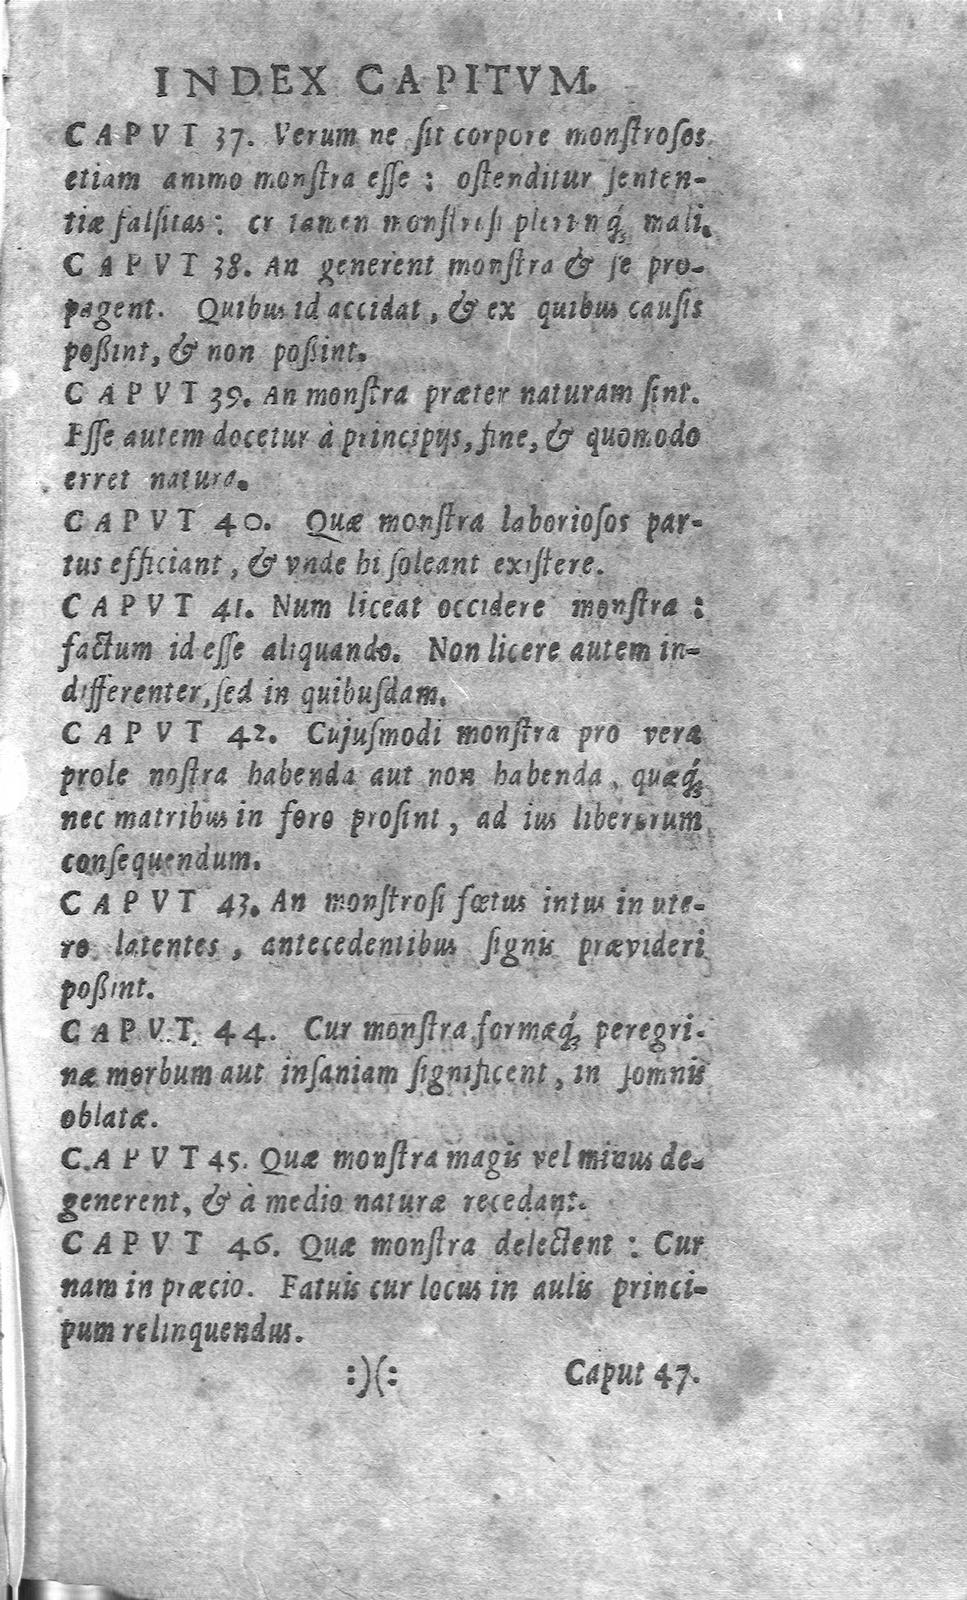 INDEX CAPITVM.
CAPVT 37. Verum ne ſit corpore monſtroſos
etiam animo monſtra eſſe : oſtenditur ſenten-
tiæ falſitas : et tamen monſtroſi plerunq́; mali.
CAPVT 38. An generent monſtra & ſe pro-
pagent. Quibus id accidat, & ex quibus cauſis
poßint, & non poßint.
CAPVT 39. An monſtra præter naturam ſint.
Eſſe autem docetur à principijs, fine, & quomodo
erret natura.
CAPVT 40. Quæ monſtra laborioſos par-
tus efficiant, & vnde hi ſoleant exiſtere.
CAPVT 41. Num liceat occidere monſtra :
factum id eſſe aliquando. Non licere autem in-
differenter, ſed in quibuſdam.
CAPVT 42. Cujuſmodi monſtra pro vera
prole noſtra habenda aut non habenda, quæq́;
nec matribus in foro proſint, ad ius liberorum
conſequendum.
CAPVT 43. An monſtroſi fœtus intus in ute-
ro latentes, antecedentibus ſignis prævideri
poßint.
CAPVT 44. Cur monſtra formæq́; peregri-
næ morbum aut inſaniam ſignificent, in ſomnis
oblatæ.
CAPVT 45. Quæ monſtra magis vel minus de-
generent, & à medio naturæ recedant.
CAPVT 46. Quæ monſtra delectent : Cur
nam in præcio. Fatuis cur locus in aulis princi-
pum relinquendus.
:)(: Caput 47.